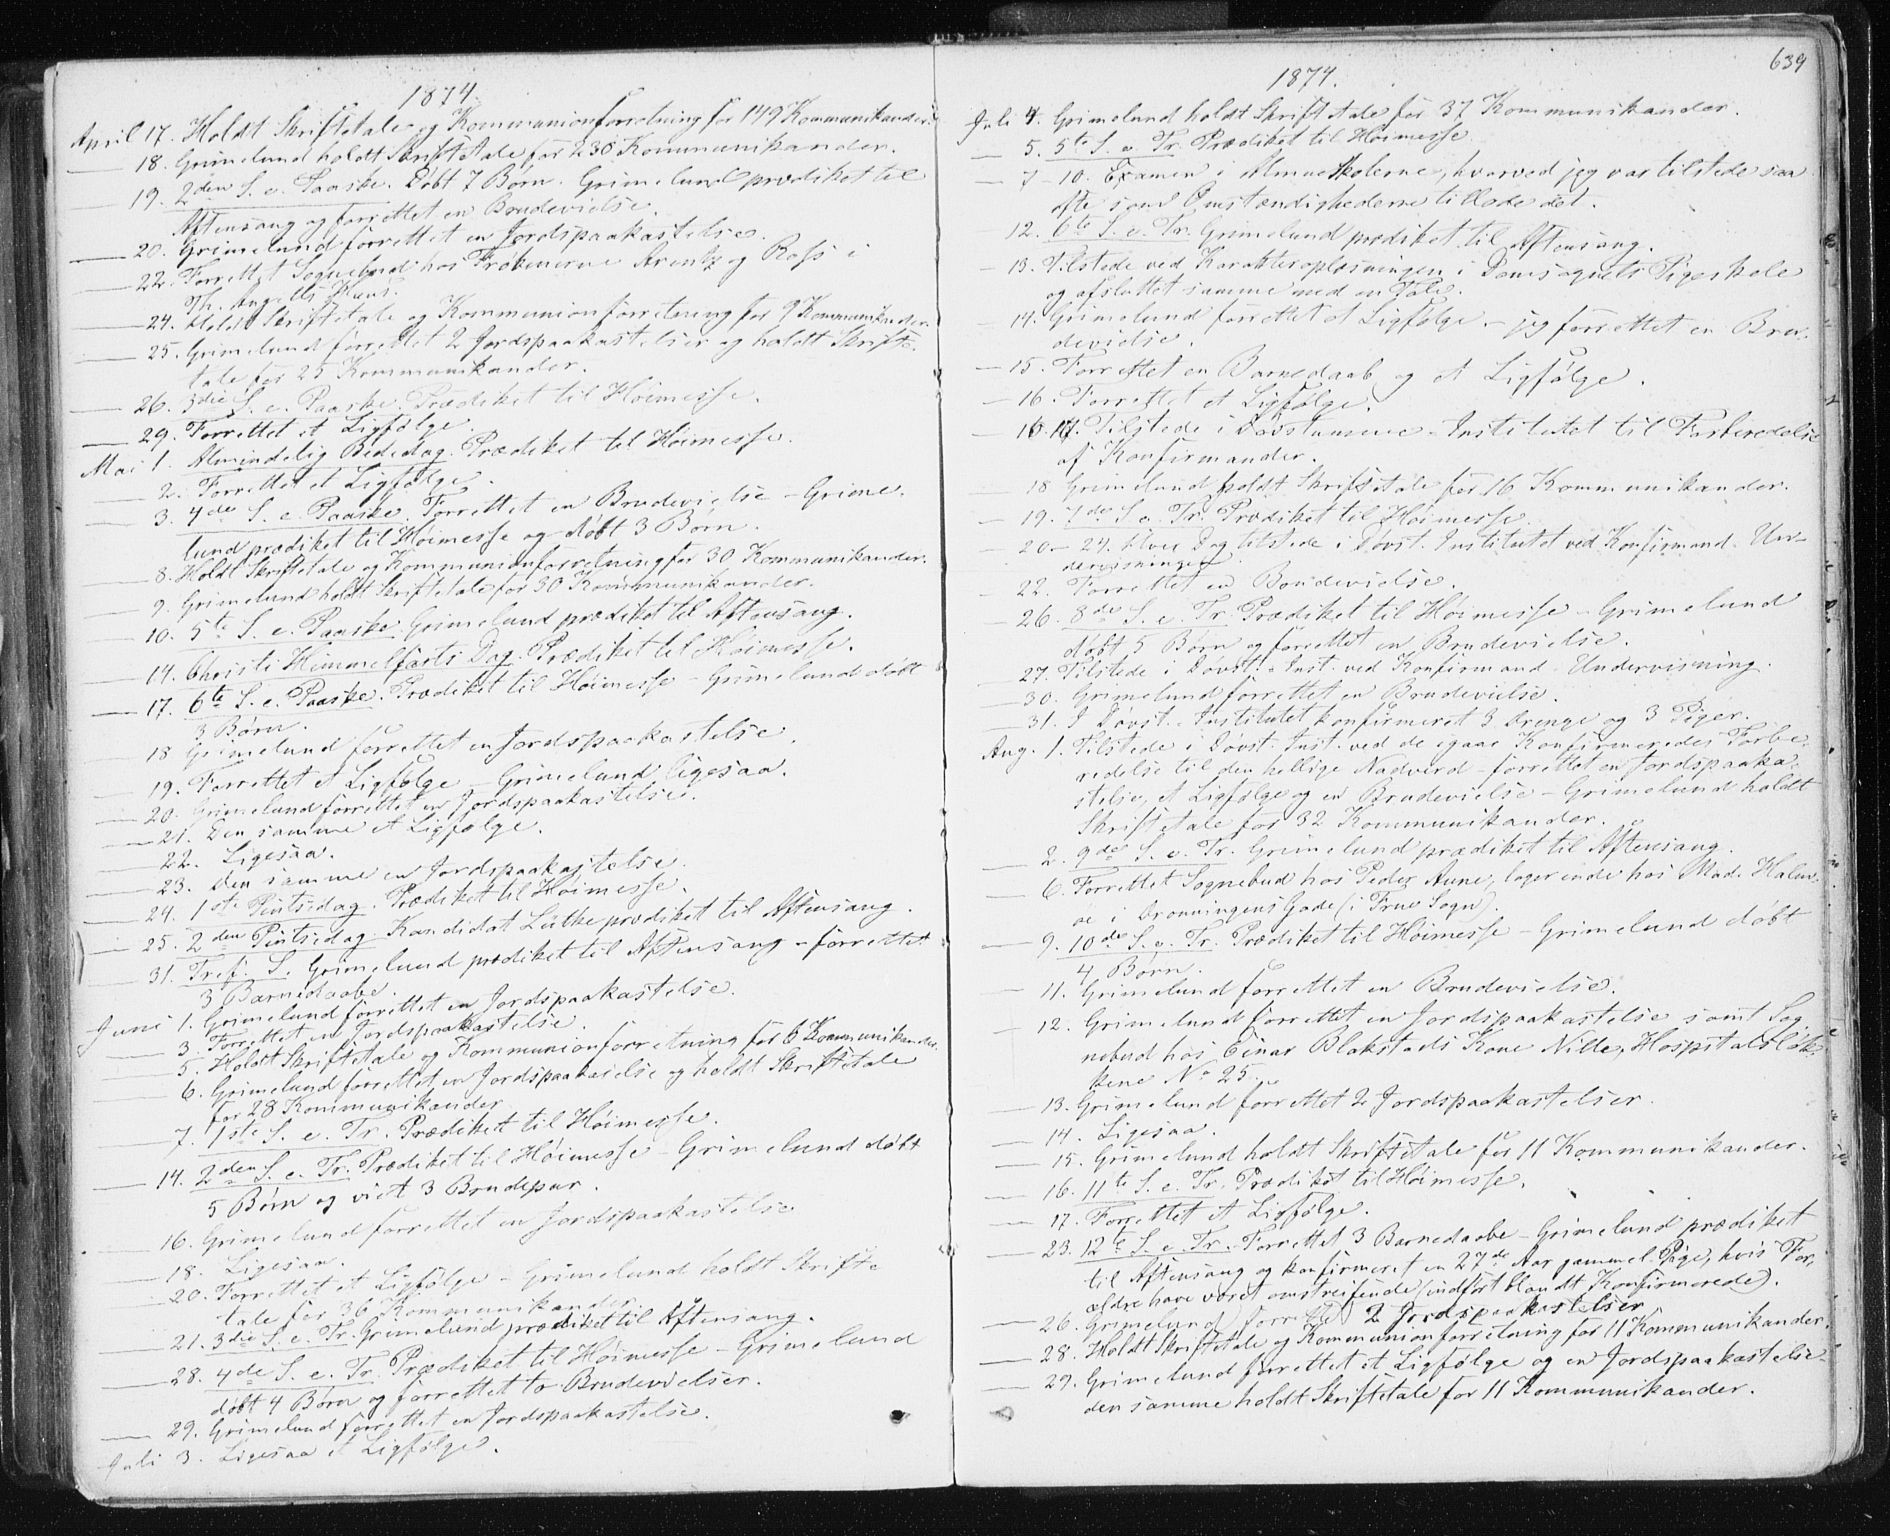 1874.
April 17. Holdt Skriftetale og Kommunionforretning for 149 Kommunikander.
— 18. Grimelund holdt Skriftetale for 230 Kommunikander.
— 19. 2den S. e. Paaske. Døbt 7 Børn. Grimelund prædiket til
Aftensang og forrettet en Brudevielse.
— 20. Grimelund forrettet en Jordspaakastelse.
— 22. Forrettet Sognebud hos Frøknerne Arentz og Ross i
Th. Angells Huus.
— 24. Holdt Skriftetale og Kommunionforretning for 9 Kommunikander.
— 25. Grimelund forrettet 2 Jordspaakastelser og holdt Skrifte-
tale for 25 Kommunikander.
— 26. 3die S. e. Paaske. Prædiket til Høimesse.
— 29. Forrettet et Ligfølge.
Mai 1. Almindelig Bededag. Prædiket til Høimesse.
— 2. Forrettet et Ligfølge.
— 3. 4de S. e. Paaske. Forrettet en Brudevielse – Grime-
lund prædiket til Høimesse og døbt 3 Børn.
— 8. Holdt Skriftetale og Kommunionforretning for 30 Kommunikander.
— 9. Grimelund holdt Skriftetale for 30 Kommunikander.
— 10. 5te S. e. Paaske. Grimelund prædiket til Aftensang.
— 14. Christi Himmelfarts Dag. Prædiket til Høimesse.
— 17. 6te S. e. Paaske. Prædiket til Høimesse – Grimelund døbt
3 Børn.
— 18 Grimelund forrettet en Jordspaakastelse.
— 19. Forrettet et Ligfølge – Grimelund ligesaa.
— 20. Grimelund forrettet en Jordspaakastelse.
— 21. Den samme et Ligfølge.
— 22. Ligesaa.
— 23. Den samme en Jordspaakastelse.
— 24. 1ste Pintsedag. Prædiket til Høimesse.
— 25. 2den Pintsedag. Kandidat Lütke prædiket til Aftensang.
— 31. Tref. S. Grimelund prædiket til Aftensang – forrettet
3 Barnedaabe.
Juni 1. Grimelund forrettet en Jordspaakastelse.
— 3. Forrettet en Jordspaakastelse.
— 5. Holdt Skriftetale og Kommunionforretning for 6 Kommunikander.
— 6. Grimelund forrettet en Jordspaakastelse og holdt Skriftetale
for 28 Kommunikander
— 7. 1ste S. e. Tr. Prædiket til Høimesse.
— 14. 2den S. e. Tr. Prædiket til Høimesse – Grimelund døbt
5 Børn og viet 3 Brudepar.
— 16. Grimelund forrettet en Jordspaakastelse
— 18. Ligesaa.
— 20. Forrettet et Ligfølge – Grimelund holdt Skrifte-
tale for 36 Kommunikander.
— 21. 3die S. e. Tr. Grimelund prædiket til Aftensang.
— 28. 4de S. e. Tr. Prædiket til Høimesse – Grimelund
døbt 4 Børn og forrettet to Brudevielser.
— 29. Grimelund forrettet en Jordspaakastelse.
Juli 3. Ligesaa et Ligfølge.
639
1874.
Juli 4. Grimelund holdt Skriftetale for 37 Kommunikander.
— 5. 5te S. e. Tr. Prædiket til Høimesse.
— 7–10. Examen i Almueskolerne, hvorved jeg var tilstede saa
ofte som Omstændighederne tillode det.
— 12. 6te S. e. Tr. Grimelund prædiket til Aftensang.
— 13. Tilstede ved Karakteroplæsningen i Domsognets Pigeskole
og afsluttet samme med en Tale.
— 14. Grimelund forrettet et Ligfølge – jeg forrettet en Bru-
devielse.
— 15. Forrettet en Barnedaab og et Ligfølge.
— 16. Forrettet et Ligfølge.
— 16. 17. Tilstede i Døvstumme-Institutet til Forberedelse
af Konfirmander.
— 18 Grimelund holdt Skriftetale for 16 Kommunikander.
— 19. 7de S. e. Tr. Prædiket til Høimesse.
— 20–24. Hver Dag tilstede i Døvst. Institutet ved Konfirmand-Un-
dervisningen.
— 22. Forrettet en Brudevielse.
— 26. 8de S. e. Tr. Prædiket til Høimesse – Grimelund
døbt 5 Børn og forrettet en Brudevielse.
— 27. Tilstede i Døvst.-Inst. ved Konfirmand-Undervisning.
— 30. Grimelund forrettet en Brudevielse.
— 31. I Døvst.-Institutet konfirmeret 3 Drenge og 3 Piger.
Aug. 1. Tilstede i Døvst. Inst. ved de igaar Konfirmeredes Forbe-
redelse til den hellige Nadverd – forrettet en Jordspaaka-
stelse, et Ligfølge og en Brudevielse – Grimelund holdt
Skriftetale for 32 Kommunikander.
— 2. 9de S. e. Tr. Grimelund prædiket til Aftensang.
— 6. Forrettet Sognebud hos Peder Aune, logerende hos Mad. Halm-
øe i Dronningens Gade (i Frue Sogn).
— 9. 10de S. e. Tr. Prædiket til Høimesse – Grimelund døbt
4 Børn.
— 11. Grimelund forrettet en Brudevielse.
— 12. Grimelund forrettet en Jordspaakastelse samt Sog-
nebud hos Einar Blakstads Kone Nille, Hospitalsløk-
kene No 25.
— 13. Grimelund forrettet 2 Jordspaakastelser.
— 14. Ligesaa.
— 15. Grimelund holdt Skriftetale for 11 Kommunikander.
— 16. 11te S. e. Tr. Prædiket til Høimesse.
— 17. Forrettet et Ligfølge.
— 23. 12te S. e. Tr. Forrettet 3 Barnedaabe – Grimelund prædiket
til Aftensang og konfirmeret en 27de Aar gammel Pige, hvis For-
ældre have været omstreifende (indført blandt Konfirmerede).
— 26. Grimelund forrettet 2 Jordspaakastelser
— 28. Holdt Skriftetale og Kommunionforretning for 11 Kommunikander.
— 29. Grimelund forrettet et Ligfølge og en Jordspaakastelse
den samme holdt Skriftetale for 11 Kommunikander.